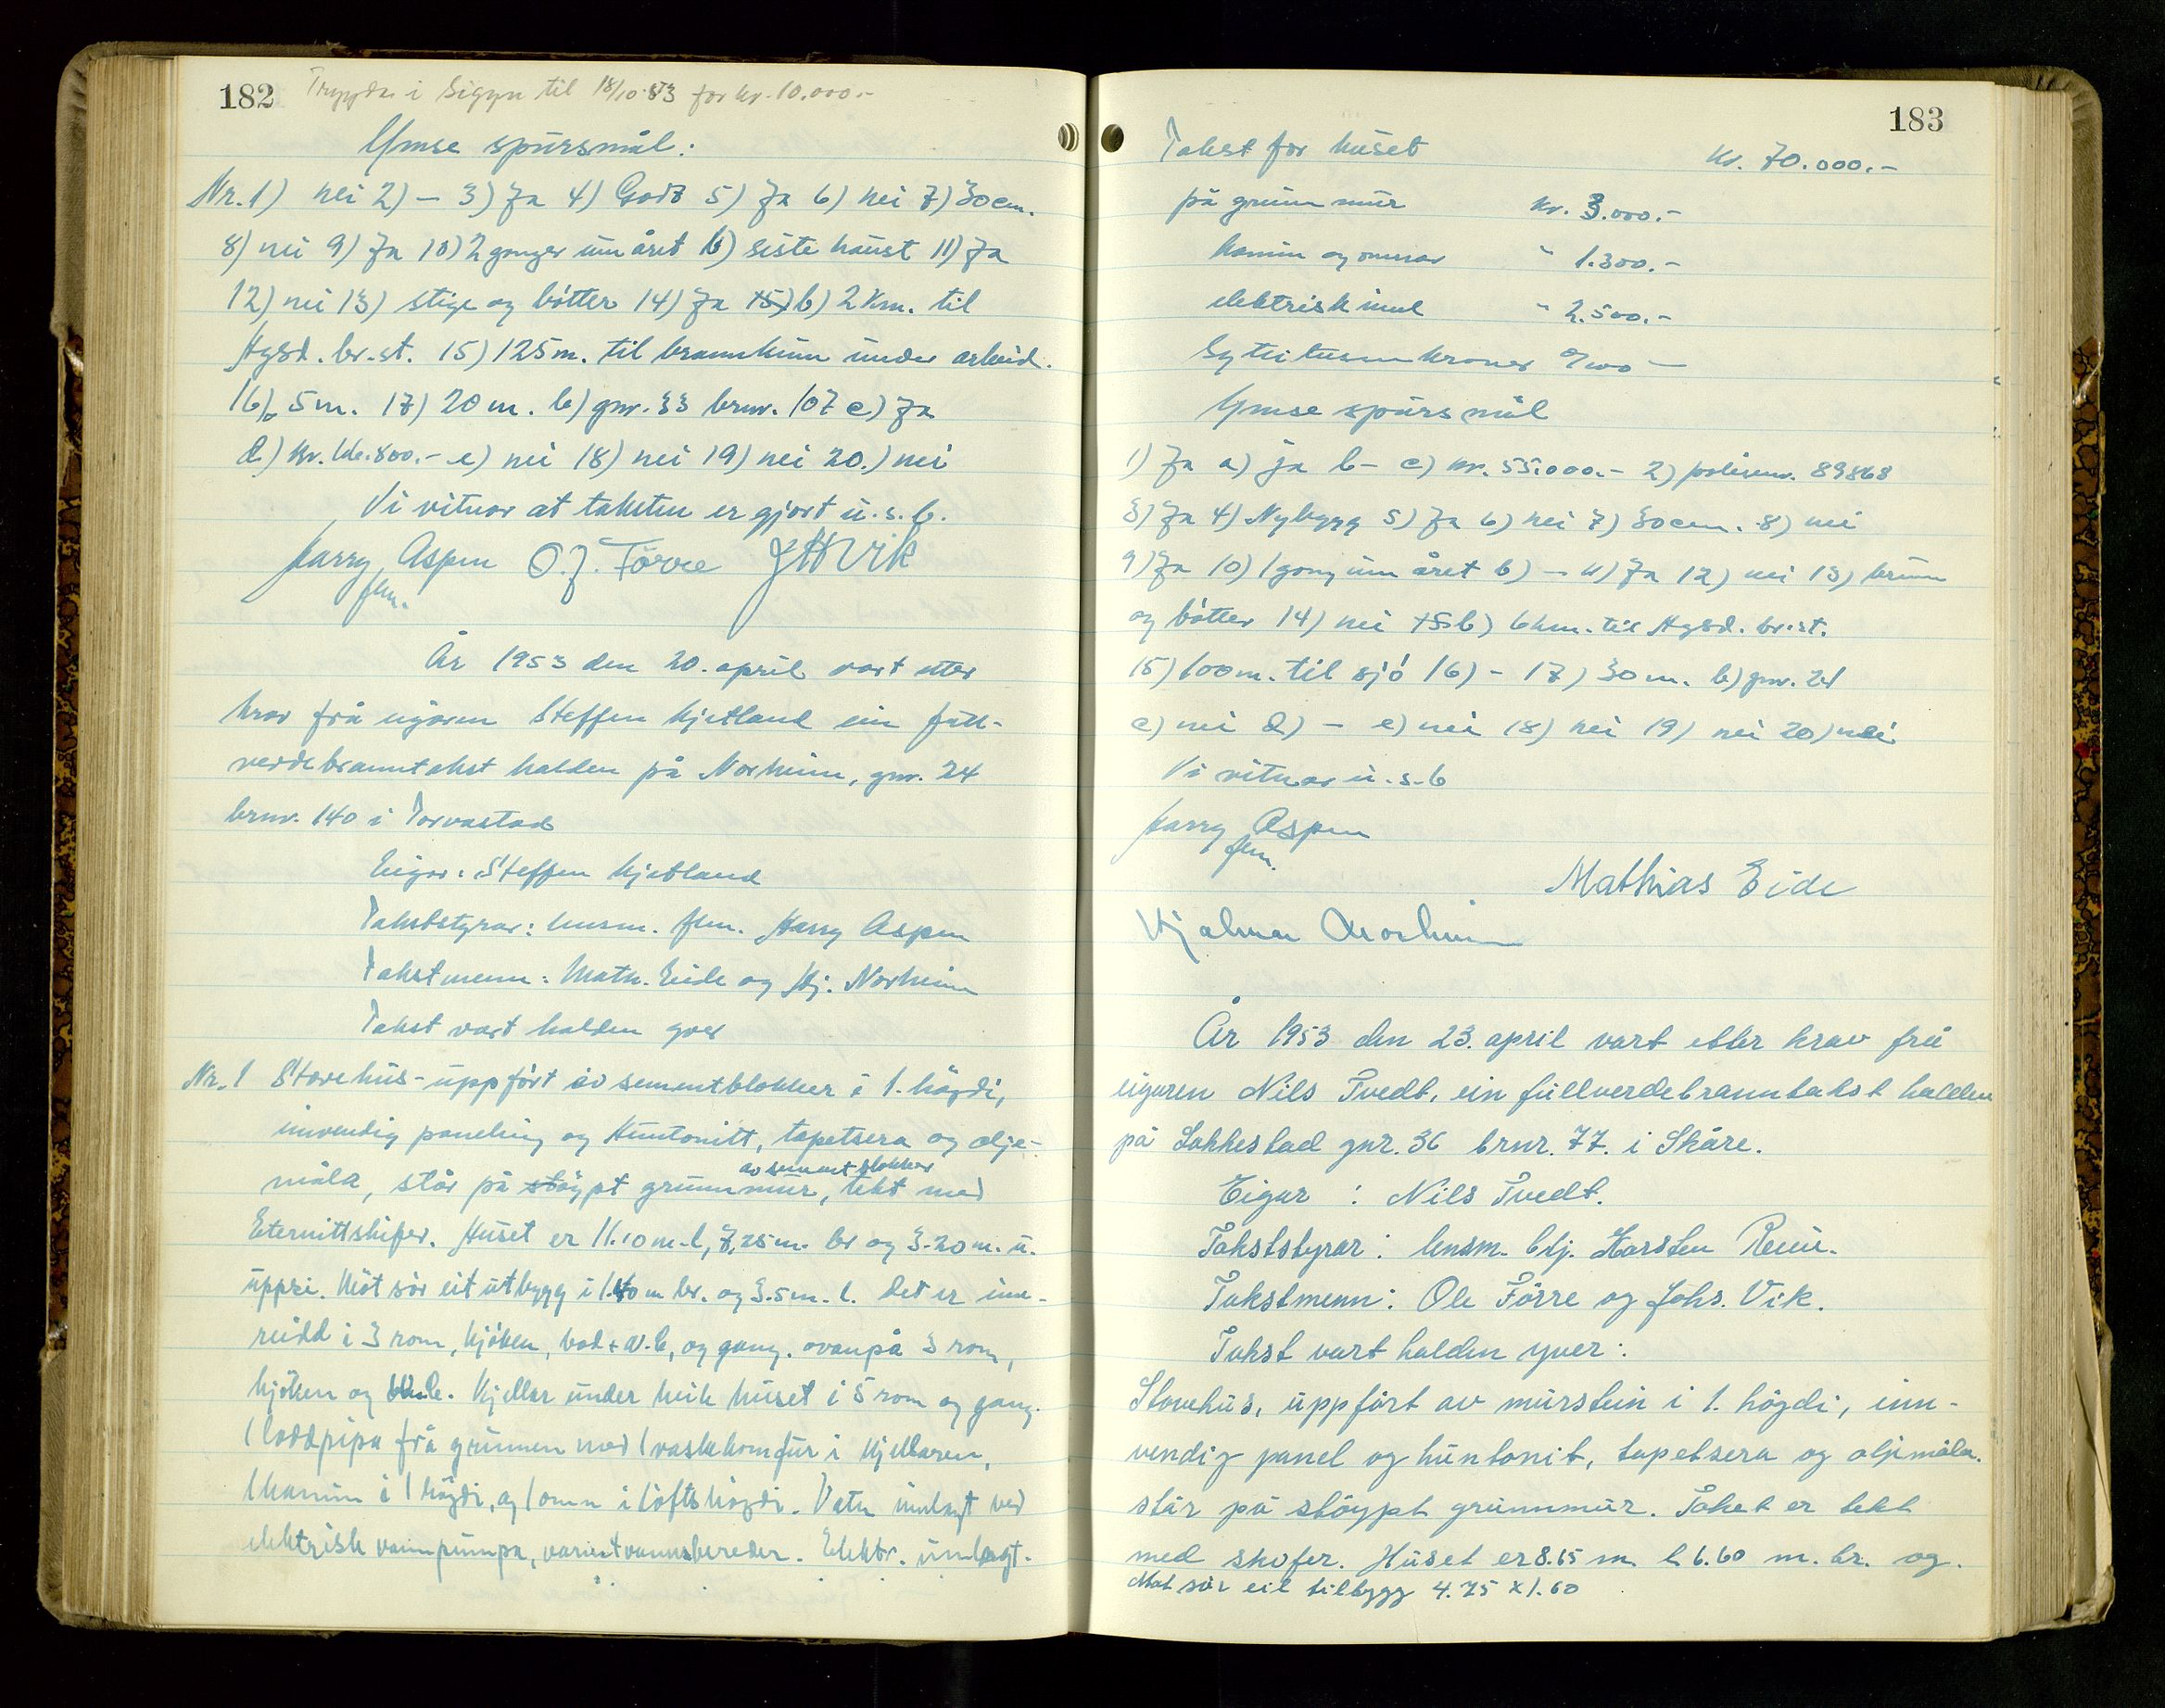 182 Tryggda i Sigyn til 18/10-53 for kr. 10.000.-
Ymse spursmål:
Nr. 1) nei 2) — 3) Ja 4) Godt 5) Ja 6) nei 7) 30cm.
8) nei 9) Ja 10) 2 gonger um året b) siste haust 11) Ja
12) nei 13) stige og bøtter 14) Ja 15) b) 2 Km. til
Hgsd. br.st. 15) 125m. til brannkum under arbeid.
16) 5m. 17) 20m. b) gnr. 33 brnr. 107 c) Ja
d) Kr. 800.- e) nei 18) nei 19) nei 20.) nei
Vi vitnar at taksten er gjort u.s.b.
Harry Aspen O.J. Førre JHVik
flm.
År 1953 den 20. april vart etter
krav frå eigaren Steffen Kjetland ein full-
verdebranntakst halden på Norheim, gnr. 24
brnr. 140 i Torvastad
Eigar: Steffen Kjetland
Takststyrar: lensm. flm. Harry Aspen
Takstmenn: Math. Eide og Hj. Norheim
Takst vart halden yver
Nr. 1 Stovehus - uppført av sementblokker i 1. høgdi,
innvendig paneling og Huntonitt, tapetsera og olje-
av sement blokker
måla, står på støypt grunnmur, tekt med
Eternittskifer. Huset er 11.10 m. l, 7,25 m. br og 3.20 m. u.
uppri. Mot sør eit utbygg i 1.40 m br. og 3.5 m. l. Det er inn-
reidd i 3 rom, kjøken, bad + W.C, og gang. ovanpå 3 rom,
kjøken og W.C. Kjellar under heile huset i 5 rom og gang.
1 loddpipa frå grunnen med 1 vaskekomfur i kjellaren,
1 kamin i 1 høgdi, og 1 omn i loftshøgdi. Vatn innlagt ved
elektrisk vannpumpa, varmtvannsbereder. Elektr. innlagt.
183
Takst for huset kr. 70.000.-
på grunnmur kr. 3.000.-
kamin og omnar " 1.300.-
elektrisk innl " 2.500.-
Sytti tusen kroner 0/100 —
Ymse spursmål
1) Ja a) ja b - c) kr. 55.000.- 2) polisenr. 89868
3) Ja 4) Nybygg 5) Ja 6) nei 7) 30cm. 8) nei
9) Ja 10) 1 gong um året b) — 11) Ja 12) nei 13) brunn
og bøtter 14) nei 15 b) 6 km. til Hgsd. br.st.
15) 100m. til sjø 16) - 17) 30m. b) gnr. 24
c) nei d) — e) nei 18) nei 19) nei 20) nei
Vi vitnar u.s.b
Harry Aspen
flm.
Mathias Eide
Hjalmar Norheim
År 1953 den 23. april vart etter krav frå
eigaren Nils Tvedt, ein fullverdebranntakst halden
på Sakkestad gnr. 36 brnr. 77. i Skåre.
Eigar : Nils Tvedt.
Takststyrar: lensm. btj. Karsten
Takstmenn: Ole Førre og Johs. Vik.
Takst vart halden yver:
Stovehus, uppført av murstein i 1. høgdi, inn-
vendig panel og huntonit, tapetsera og oljemåla.
står på støypt grunnmur. Taket er tekt
med skofer. Huset er 8.65 m. l. 6.60 m. br. og.
Mot sør eit tilbygg 4.75 x 1.60